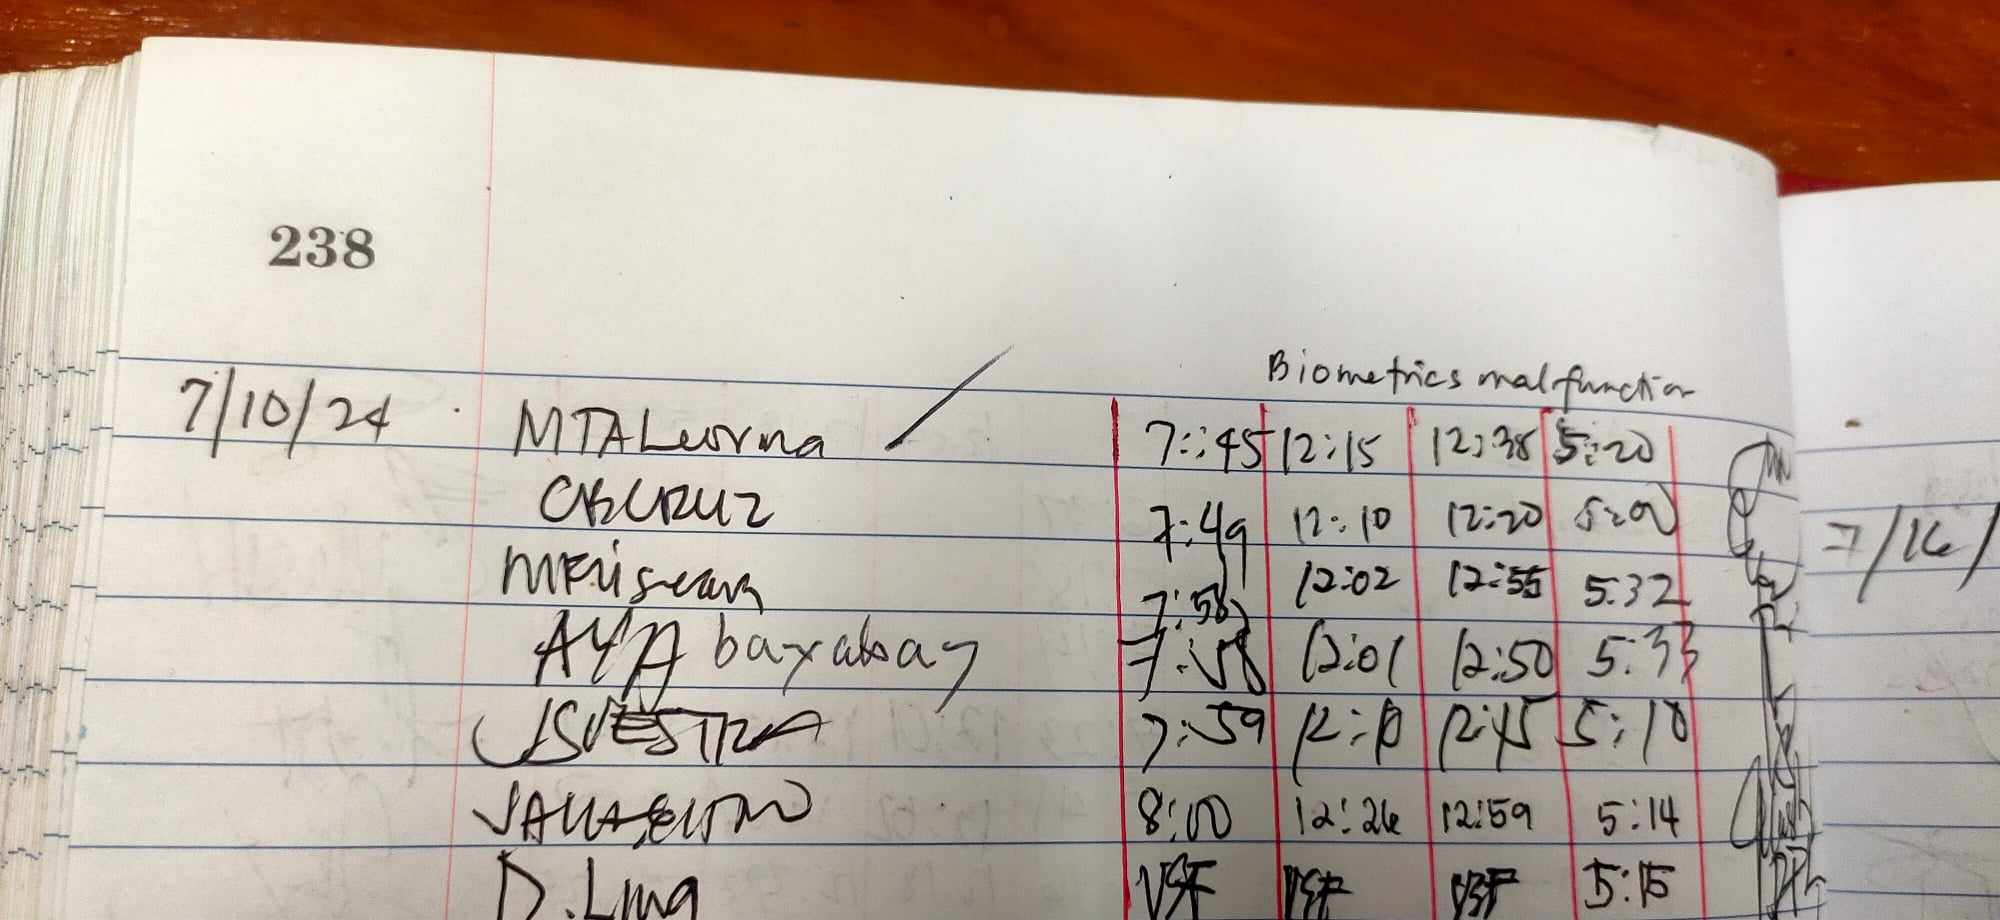 238
Biometrics malfunction
7/10/24 MTALworma 7:45 12:15 12:38 5:20
CBCRUZ 7:49 12:10 12:20 5:00
7:58 12:02 12:55 5:32
AYA bayabay 7:58 12:01 12:50 5:33
JSVESTRA 7:59 12:10 12:45 5:10
8:00 12:26 12:59 5:14
D. Lina VSF VSF VSF 5:15
7/16/